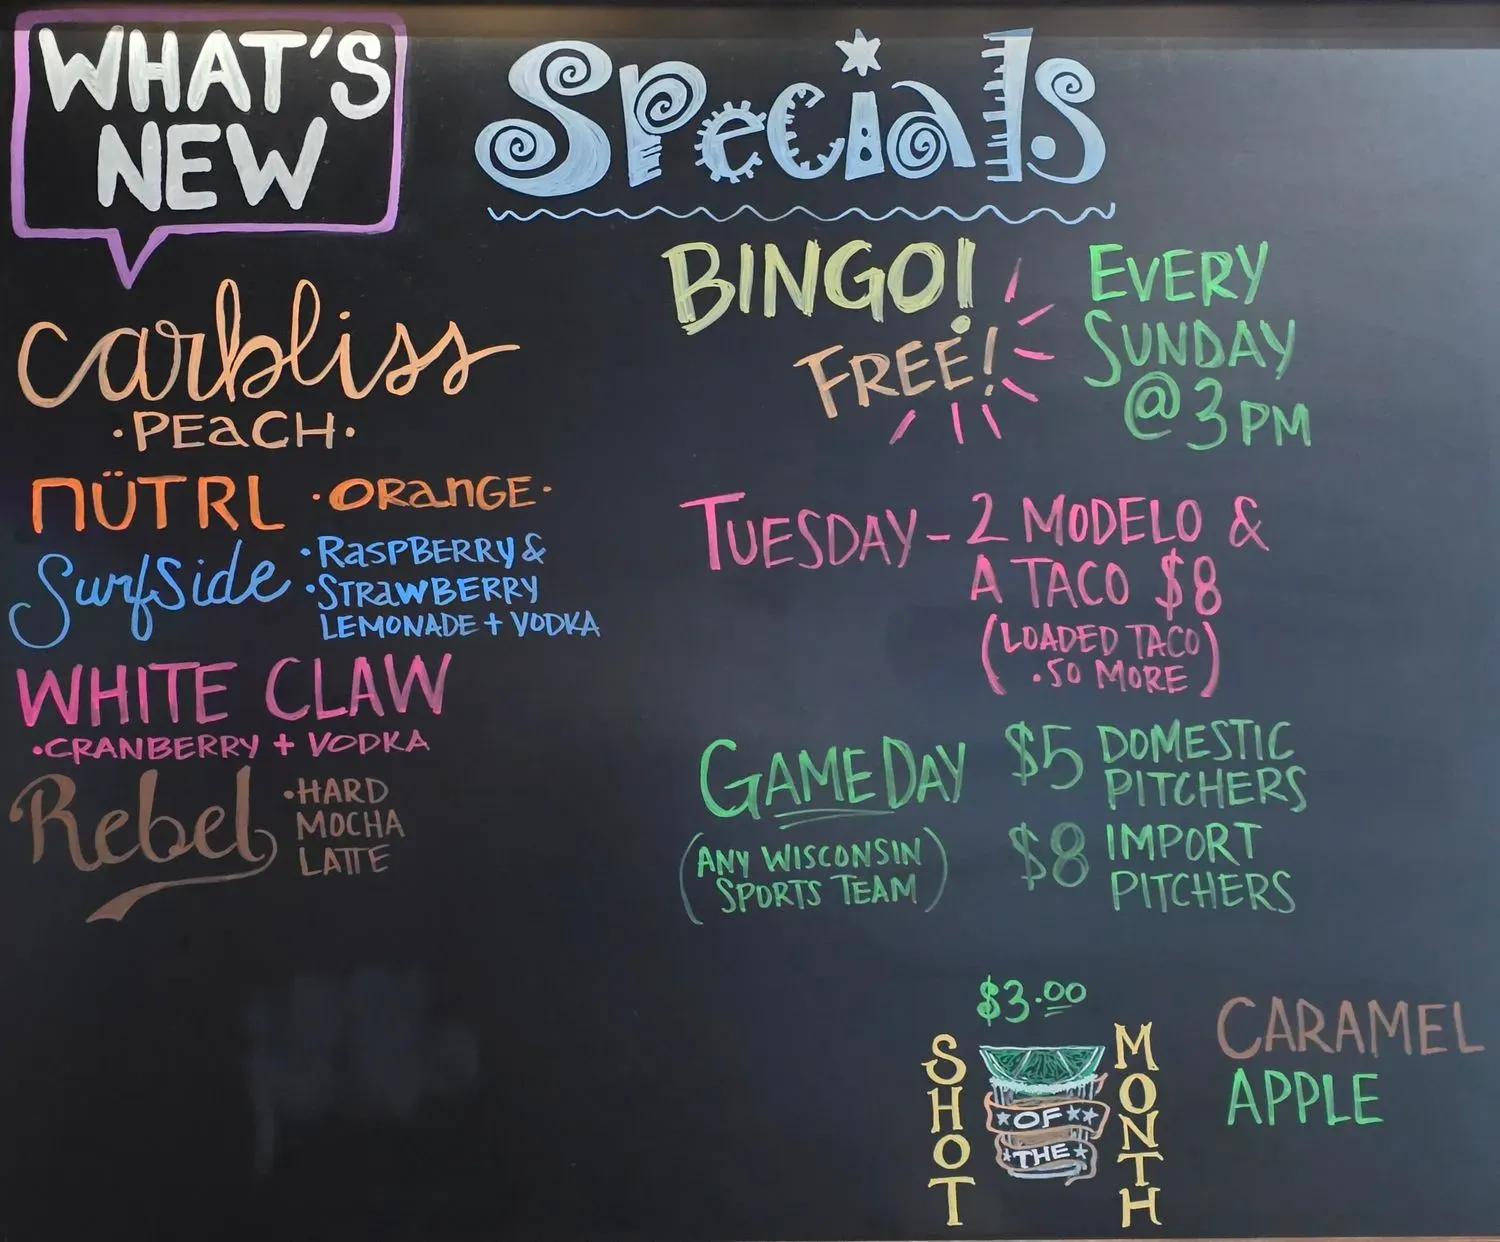 WHAT'S
NEW
Carbliss
·PEACH·
NÜTRL ·ORANGE·
Surfside ·RASPBERRY &
·STRAWBERRY
LEMONADE + VODKA
WHITE CLAW
·CRANBERRY + VODKA
Rebel ·HARD
MOCHA
LATTE
Specials
BINGO!
FREE!
EVERY
SUNDAY
@ 3 PM
TUESDAY - 2 MODELO &
A TACO $8
(LOADED TACO
.50 MORE)
GAMEDAY
(ANY WISCONSIN
SPORTS TEAM)
$5 DOMESTIC
PITCHERS
$8 IMPORT
PITCHERS
$3.00
SHOT
OF
THE
MONTH
CARAMEL
APPLE